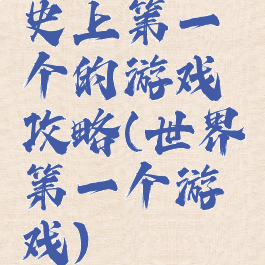 史上第一
个的游戏
攻略(世界
第一个游
戏)